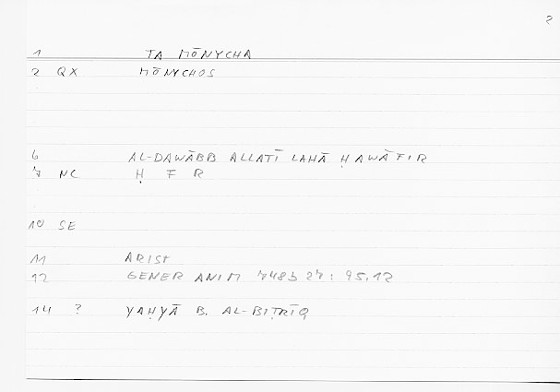 ?
1 TA MŌNYCHA
2 QX MŌNYCHOS
6 AL-DAWĀBB ALLATĪ LAHĀ ḤAWĀFIR
7 NC Ḥ F R
10 SE
11 ARIST
12 GENER ANIM 748b 27: 95.12
14 ? YAḤYĀ B. AL-BIṬRĪQ